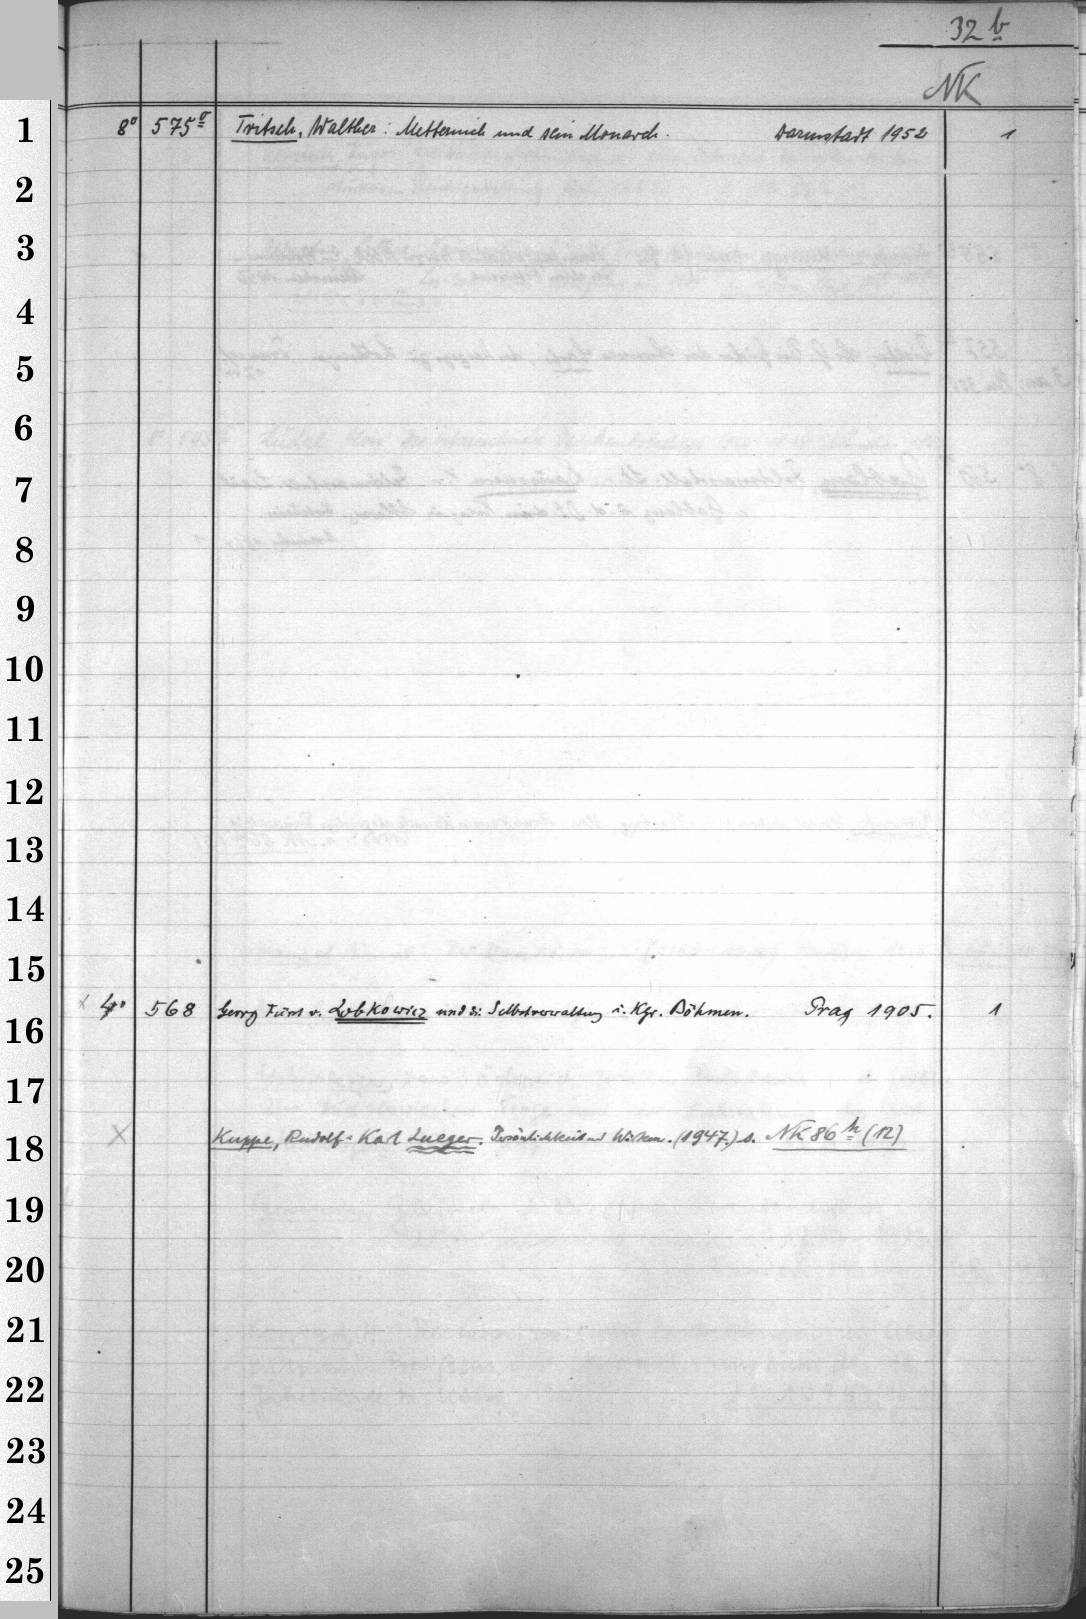 32 b
NK
1 8° 575a Tritsch, Walther: Metternich und sein Monarch. Darmstadt 1952 1
2
3
4
5
6
7
8
9
10
11
12
13
14
15
16 x 4° 568 Georg Fürst v. Lobkowicz und di: Selbstverwaltung i. Kgr. Böhmen. Prag 1905. 1
17
18 X Kuppe, Rudolf: Karl Lueger. Persönlichkeit und Wirken. (1947.) s. NK 86 h (12)
19
20
21
22
23
24
25